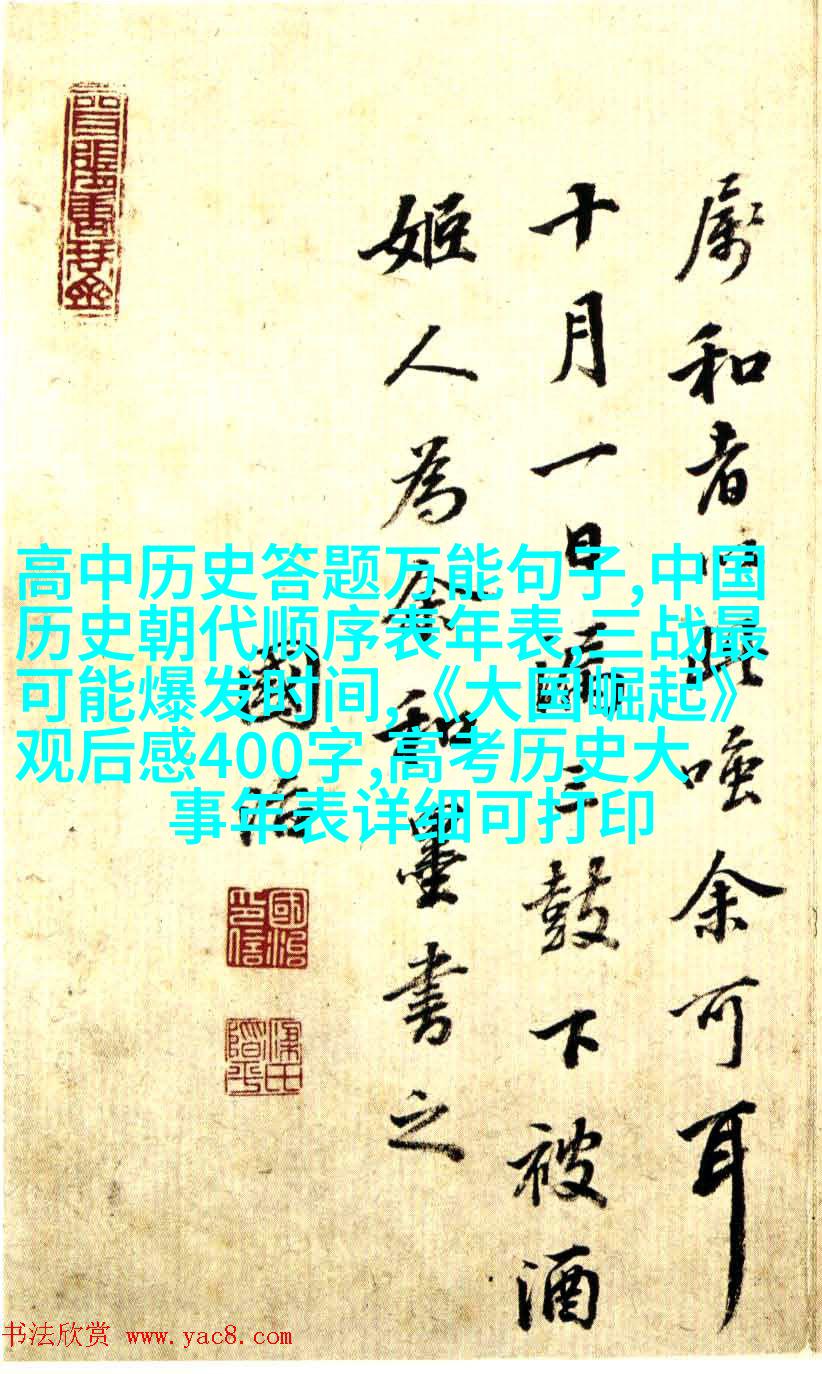 属和者唾余可耳
十月一日漏三鼓下被酒
姬人為余和墨書之
國治
國治印信
高中历史答题万能句子,中国
历史朝代顺序表年表,三战最
可能爆发时间,《大国崛起》
观后感400字,高考历史大
事年表详细可打印
书法欣赏 www.yac8.com